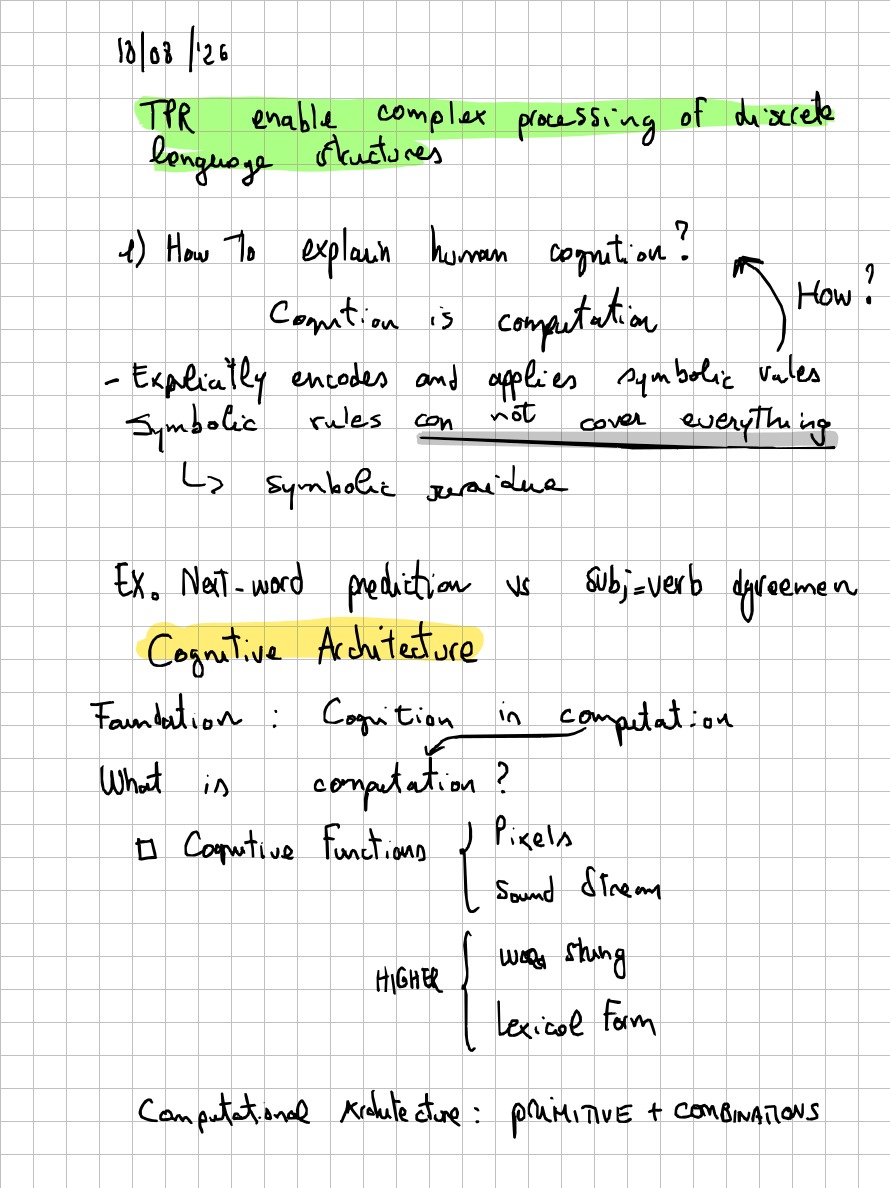 18/08/'26
TPR enable complex processing of discrete
language structures
1) How To explain human cognition?
How?
Cognition is computation
- Explicitly encodes and applies symbolic rules
Symbolic rules can not cover everything
↳ symbolic residue
Ex. Next-word prediction vs subj-verb agreemen
Cognitive Architecture
Foundation : Cognition is computation
What is computation?
□ Cognitive Functions { Pixels
Sound Stream
HIGHER { word string
Lexical Form
Computational Architecture : PRIMITIVE + COMBINATIONS